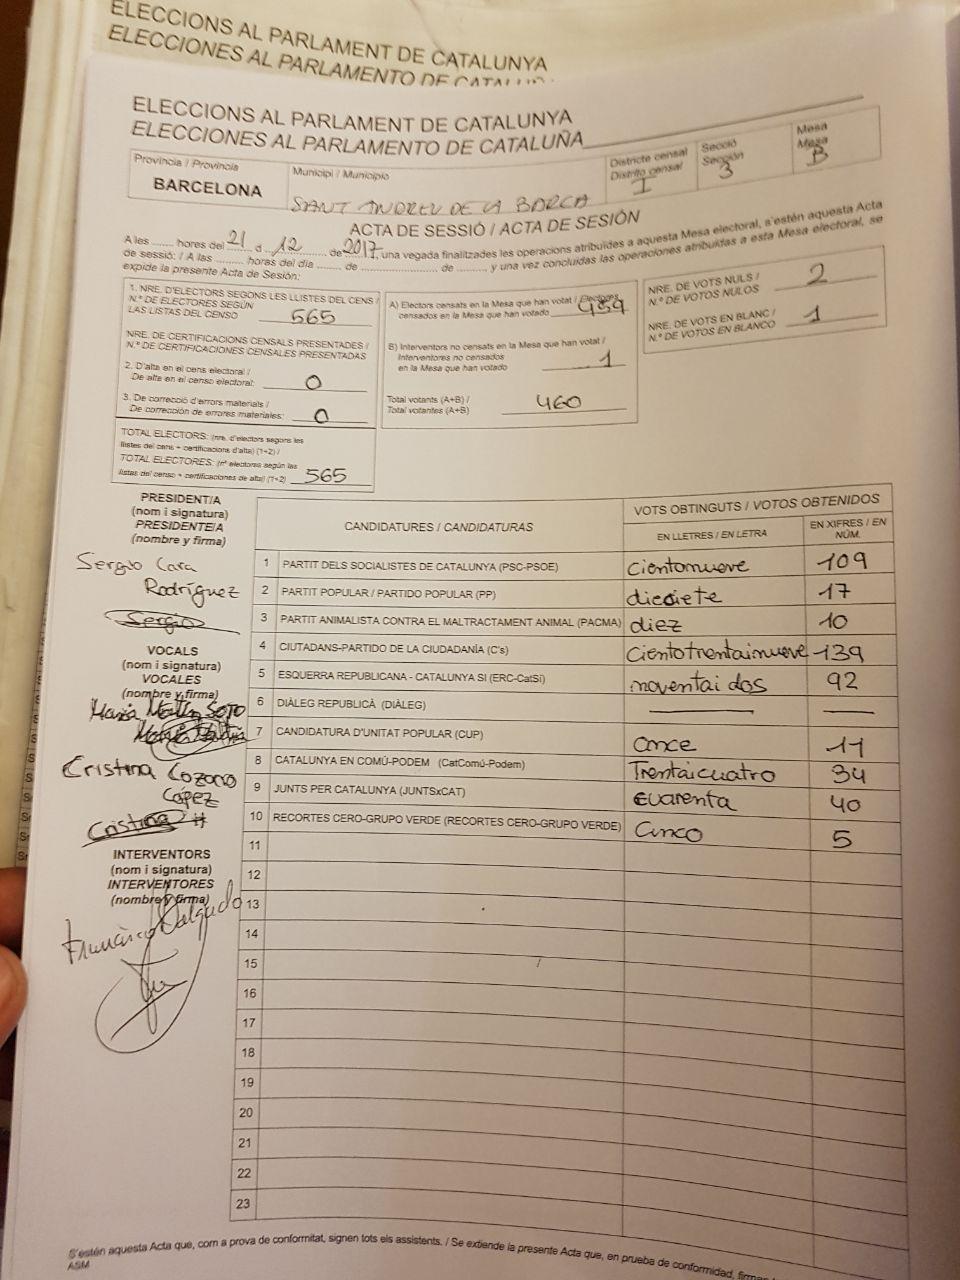 ELECCIONS AL PARLAMENT DE CATALUNYA
ELECCIONES AL PARLAMENTO DE
ELECCIONS AL PARLAMENT DE CATALUNYA
ELECCIONES AL PARLAMENTO DE CATALUÑA
Provincia / Provincia
BARCELONA
Municipi / Municipio
SANT ANDREU DE LA BARCA
Districte censal
Distrito censal
I
Secció
Sección
3
Mesa
Mesa
B
ACTA DE SESSIÓ / ACTA DE SESIÓN
A les ........ hores del 21 d 12 de 2017, una vegada finalitzades les operacions atribuïdes a aquesta Mesa electoral, s'estén aquesta Acta
de sessió: / A las ......... horas del día ........ de ........................ de ........, y una vez concluidas las operaciones atribuidas a esta Mesa electoral, se
expide la presente Acta de Sesión:
1. NRE. D'ELECTORS SEGONS LES LLISTES DEL CENS /
N.º DE ELECTORES SEGÚN
LAS LISTAS DEL CENSO 565
NRE. DE CERTIFICACIONS CENSALS PRESENTADES /
N.º DE CERTIFICACIONES CENSALES PRESENTADAS
2. D'alta en el cens electoral /
De alta en el censo electoral: 0
3. De correcció d'errors materials /
De corrección de errores materiales: 0
TOTAL ELECTORS: (nre. d'electors segons les
llistes del cens + certificacions d'alta) (1+2) /
TOTAL ELECTORES: (nº electores según las
listas del censo + certificaciones de alta) (1+2) 565
A) Electors censats en la Mesa que han votat / Electores
censados en la Mesa que han votado 459
B) Interventors no censats en la Mesa que han votat /
Interventores no censados
en la Mesa que han votado 1
Total votants (A+B) /
Total votantes (A+B) 460
NRE. DE VOTS NULS /
N.º DE VOTOS NULOS 2
NRE. DE VOTS EN BLANC /
N.º DE VOTOS EN BLANCO 1
PRESIDENT/A
(nom i signatura)
PRESIDENTE/A
(nombre y firma)
Sergio Cara
Rodríguez
Sergio
VOCALS
(nom i signatura)
VOCALES
(nombre y firma)
María Martín Soto
Cristina Lozano
López
Cristina
INTERVENTORS
(nom i signatura)
INTERVENTORES
(nombre y firma)
Francisco Salguedo
CANDIDATURES / CANDIDATURAS
VOTS OBTINGUTS / VOTOS OBTENIDOS
EN LLETRES / EN LETRA
EN XIFRES / EN
NÚM.
1 PARTIT DELS SOCIALISTES DE CATALUNYA (PSC-PSOE) cientonueve 109
2 PARTIT POPULAR / PARTIDO POPULAR (PP) diecisiete 17
3 PARTIT ANIMALISTA CONTRA EL MALTRACTAMENT ANIMAL (PACMA) diez 10
4 CIUTADANS-PARTIDO DE LA CIUDADANÍA (C's) Cientotrentainueve 139
5 ESQUERRA REPUBLICANA - CATALUNYA SI (ERC-CatSí) noventai dos 92
6 DIÀLEG REPUBLICÀ (DIÀLEG)
7 CANDIDATURA D'UNITAT POPULAR (CUP) once 11
8 CATALUNYA EN COMÚ-PODEM (CatComú-Podem) Trentaicuatro 34
9 JUNTS PER CATALUNYA (JUNTSxCAT) cuarenta 40
10 RECORTES CERO-GRUPO VERDE (RECORTES CERO-GRUPO VERDE) cinco 5
11
12
13
14
15
16
17
18
19
20
21
22
23
S'estén aquesta Acta que, com a prova de conformitat, signen tots els assistents. / Se extiende la presente Acta que, en prueba de conformidad,
ASM